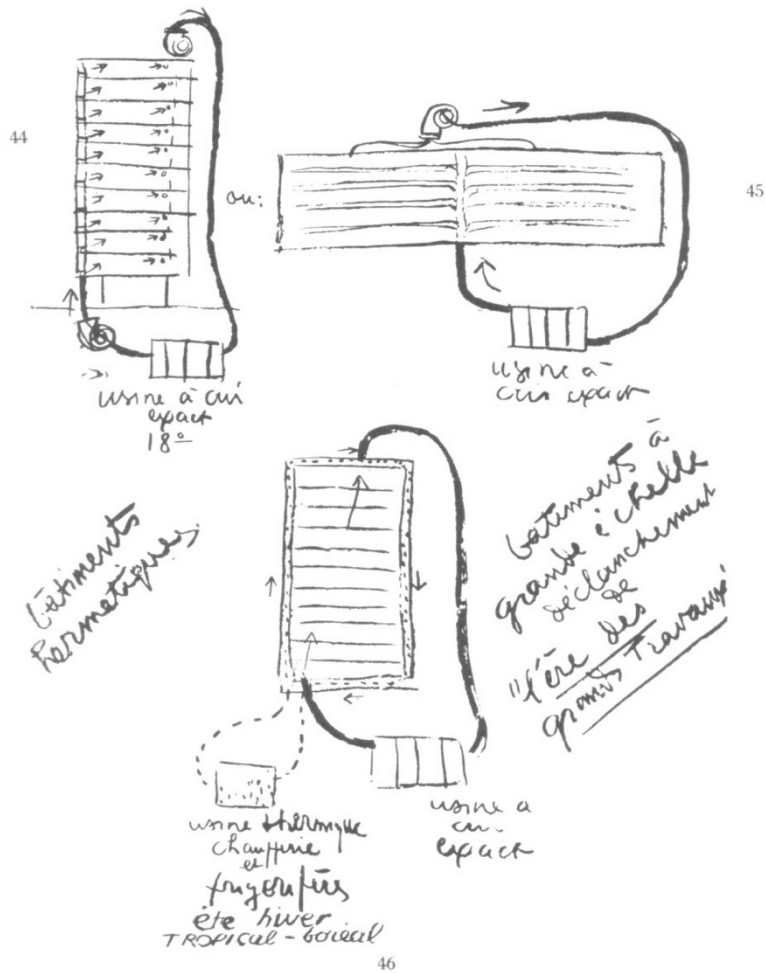 44
ou:
45
usine à air
exact
18º
usine à
air exact
bâtiments
hermétiques
bâtiments à
grande échelle
déclanchement
de
"l'ère des
grands Travaux"
usine thermique
chaufferie
et
frigorifères
été hiver
TROPICAL - boréal
usine a
air
exact
46